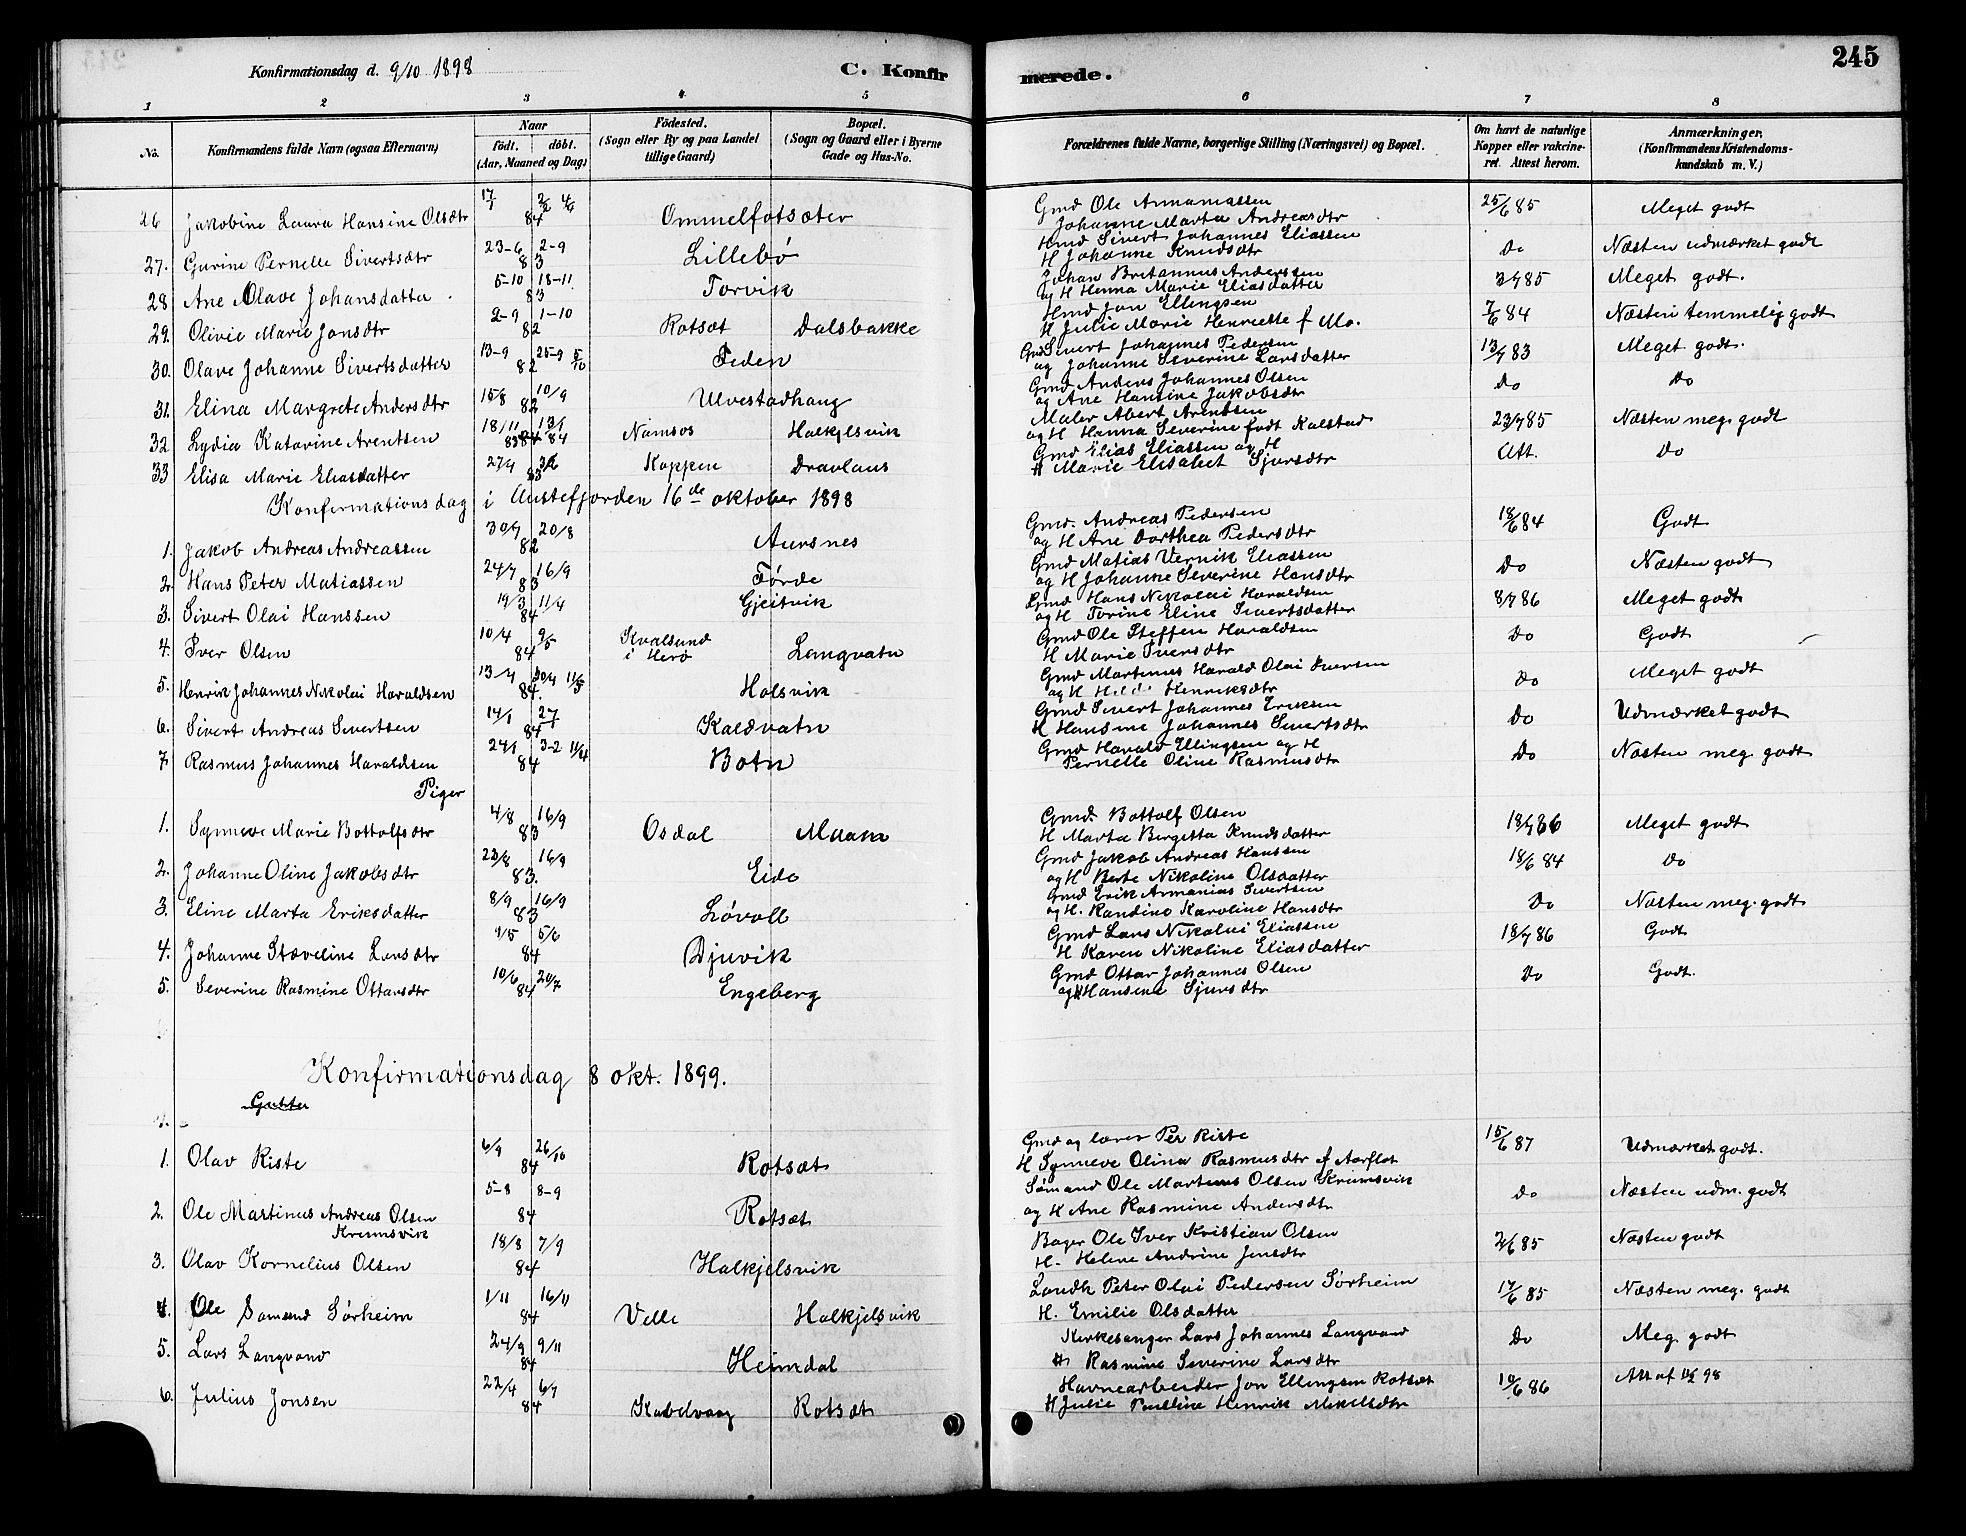 245
Konfirmationsdag d. 9/10 1898 C. Konfirmerede.
1 2 3 4 5 6 7 8
No. Konfirmandens fulde Navn (ogsaa Efternavn) Naar Födt. döbt. (Aar, Maaned og Dag) Födested. (Sogn eller By og paa Landet tillige Gaard) Bopæl. (Sogn og Gaard eller i Byerne Gade og Hus-No. Forældrenes fulde Navne, borgerlige Stilling (Næringsvei) og Bopæl. Om havt de naturlige Kopper eller vakcineret. Attest herom. Anmærkninger. (Konfirmandens Kristendomskundskab m. V.)
26 Jakobine Laura Hansine Olsdtr 17/1 84 Ommelfotsæter Gmd Ole Annaniassen Johanne Marta Andreasdtr 25/6 85 Meget godt
27. Gurine Pernelle Sivertsdtr 23-6 2-9 83 Lillebø Hmd Sivert Johannes Eliassen H Johanne Knudsdtr Do Næsten udmærket godt
28 Ane Olave Johansdatter 5-10 18-11 83 Torvik Johan Britannus Anderssen og H Henna Marie Eliasdatter 3/7 85 Meget godt.
29. Olivie Marie Jonsdtr 2-9 1-10 82 Rotsæt Dalsbakke Hmd Jon Ellingsen H Julie Marie Henriette f Mo. 7/6 84 Næsten temmelig godt
30. Olave Johanne Sivertsdatter 13-9 25-9 5/10 82 Feden Gmd Sivert Johannes Pedersen og Johanne Severine Larsdatter 13/7 83 Meget godt.
31. Elina Margrete Andersdtr 15/8 10/9 82 Ulvestadhaug Gmd Anders Johannes Olsen og Ane Hansine Jakobsdtr Do Do
32 Lydia Katarine Arentsen 18/11 13/1 83 84 Namsos Halkjelsvik Maler Abert Arentsen og H Hanna Severine født Kalstad 23/7 85 Næsten meg. godt
33 Elisa Marie Eliasdatter 27/4 3/6 83 Koppen Dravlaus Gmd Elias Eliassen og H Marie Elisabet Sjursdtr Att. Do
Konfirmationsdag i Austefjorden 16de oktober 1898
1. Jakob Andreas Andreassen 30/7 20/8 82 Aursnes Gmd. Andreas Pedersen og H Ane Dorthea Pedersdtr 18/6 84 Godt
2. Hans Peter Matiassen 24/7 16/9 83 Førde Gmd Matias Vernik Eliassen og H Johanne Severine Hansdtr Do Næsten godt
3. Sivert Olai Hanssen 19/3 11/4 84 Gjeitvik Gmd Hans Nikolai Haraldsen og H Torine Eline Sivertsdatter 8/7 86 Meget godt
4. Iver Olsen 10/4 9/5 84 Kvalsund i Herø Langvatn Gmd Ole Steffen Haraldsen H Marie Iversdtr Do Godt
5. Henrik Johannes Nikolai Haraldsen 13/4 20/4 11/5 84. Holsvik Gmd Martenus Harald Olai Iversen og H Henriksdtr Do Meget godt
6. Sivert Andreas Sivertsen 14/1 84 Kaldvatn Gmd Sivert Johannes Eriksen H Hansine Johannes Sivertsdtr Do Udmærket godt
7. Rasmus Johannes Haraldsen 24/1 3-2 11/4 84 Botn Gmd Harald Ellingsen og H Pernelle Oline Rasmusdtr Do Næsten meg. godt
Piger
1. Synneve Marie Bottolfsdtr 4/8 16/9 83 Osdal Muam Gmd Bottolf Olsen H Marta Bergitta Knudsdatter 18/7 86 Meget godt
2. Johanne Oline Jakobsdtr 23/8 16/9 83. Eide Gmd Jakob Andreas Hanssen og H Berte Nikoline Olsdatter 18/6 84 Do
3. Eline Marta Eriksdatter 8/9 16/9 83 Løvoll Gmd Erik Annanias Sivertsen og H. Randine Karoline Hansdtr Do Næsten meg. godt
4. Johanne Støveline Larsdtr 9/5 5/6 84 Djuvik Gmd Lars Nikolai Eliassen H Karen Nikoline Eliasdatter 18/7 86 Godt
5. Severine Rasmine Ottarsdtr 10/6 20/7 84 Engeberg Gmd Ottar Johannes Olsen og H Hansine Sjursdtr Do Godt.
Konfirmationsdag 8 okt. 1899.
Gutter
1. Olav Riste 6/9 26/10 84 Rotsæt Gmd og lærer Per Riste H Synneve Olina Rasmusdtr f Aarflot 15/6 87 Udmærket godt.
2. Ole Martinus Andreas Olsen Krumsvik 5-8 8-9 84 Rotsæt Sømand Ole Martenus Olsen Krumsvik og H Ane Rasmine Andersdtr Do Næsten udm. godt
3. Olav Kornelius Olsen 18/8 7/9 84 Halkjelsvik Bager Ole Iver Kristian Olsen H. Helene Andrine Jensdtr 2/6 85 Næsten godt
4. Ole Samund Sørheim 1/11 16/11 84 Velle Halkjelsvik Landh Peter Olai Pedersen Sørheim H. Emilie Olsdatter 17/6 85 Næsten meg. godt
5. Lars Langvand 24/9 9/11 84 Heimdal Kirkesanger Lars Johannes Langvand H Rasmine Severine Larsdtr Do Meg. godt
6. Julius Jonsen 22/4 6/7 84 Kabelvaag Rotsæt Havnearbeider Jon Ellingsen Rotsæt H Julie Pauline Henrik Mikelsdtr 10/6 86